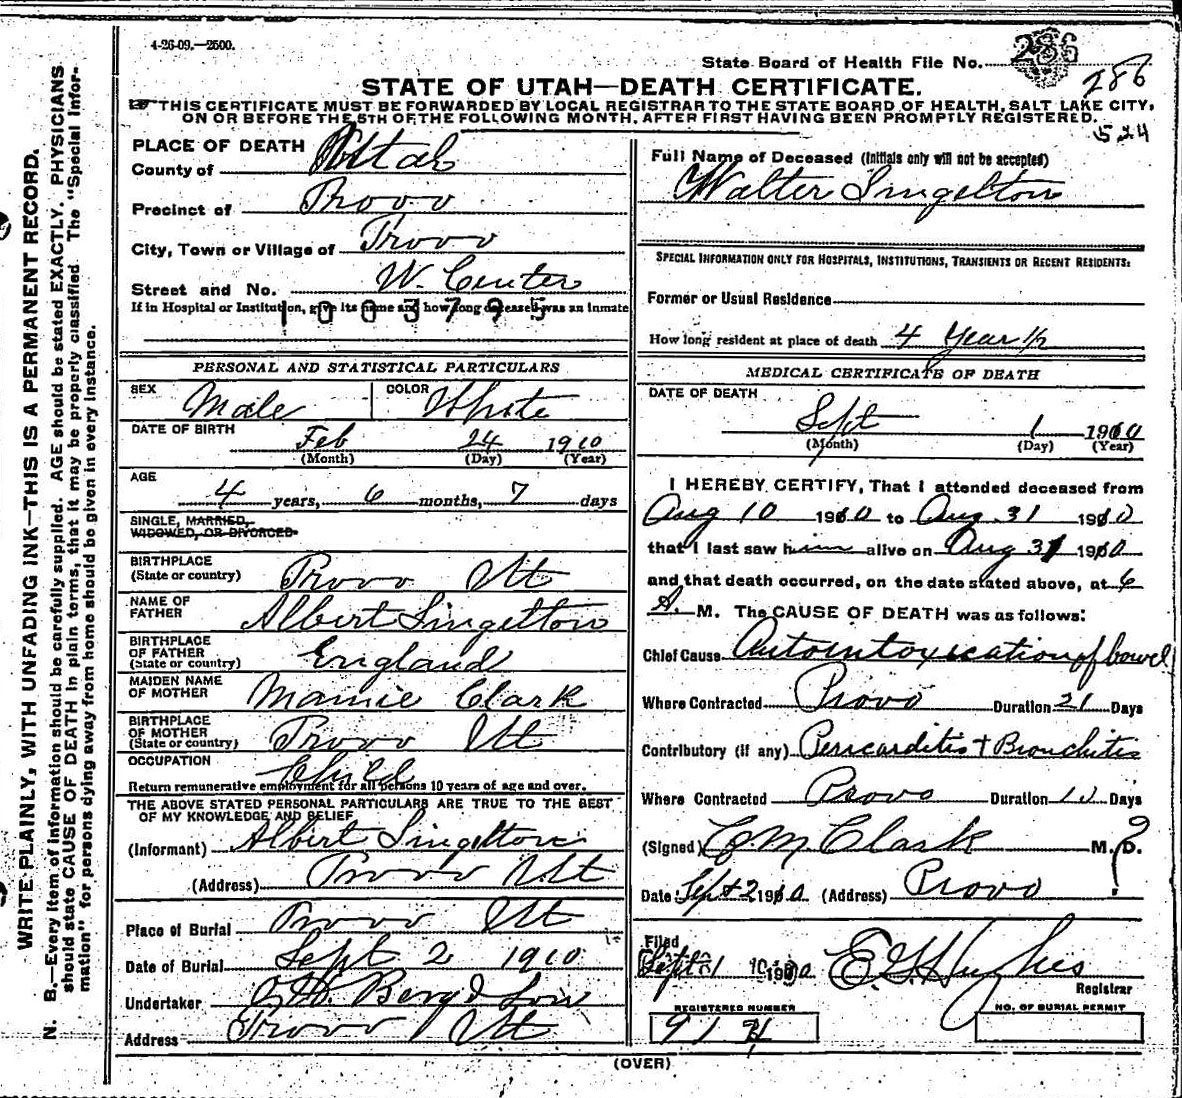 4-26-09.—2500.
State Board of Health File No. 286
286
STATE OF UTAH—DEATH CERTIFICATE.
THIS CERTIFICATE MUST BE FORWARDED BY LOCAL REGISTRAR TO THE STATE BOARD OF HEALTH, SALT LAKE CITY,
ON OR BEFORE THE 5TH OF THE FOLLOWING MONTH, AFTER FIRST HAVING BEEN PROMPTLY REGISTERED.
524
WRITE PLAINLY, WITH UNFADING INK—THIS IS A PERMANENT RECORD.
N. B.—Every item of information should be carefully supplied. AGE should be stated EXACTLY. PHYSICIANS
should state CAUSE OF DEATH in plain terms, that it may be properly classified. The "Special Infor-
mation" for persons dying away from home should be given in every instance.
PLACE OF DEATH
County of Utah
Precinct of Provo
City, Town or Village of Provo
Street and No. W. Center
If in Hospital or Institution, give its name and how long deceased was an inmate
1003795
PERSONAL AND STATISTICAL PARTICULARS
SEX Male COLOR White
DATE OF BIRTH
Feb 24 1910
(Month) (Day) (Year)
AGE
4 years, 6 months, 7 days
SINGLE, MARRIED,
WIDOWED, OR DIVORCED
BIRTHPLACE
(State or country) Provo Ut
NAME OF
FATHER Albert Singelton
BIRTHPLACE
OF FATHER
(State or country) England
MAIDEN NAME
OF MOTHER Mamie Clark
BIRTHPLACE
OF MOTHER
(State or country) Provo Ut
OCCUPATION
Child
Return remunerative employment for all persons 10 years of age and over.
THE ABOVE STATED PERSONAL PARTICULARS ARE TRUE TO THE BEST
OF MY KNOWLEDGE AND BELIEF
(Informant) Albert Singelton
(Address) Provo Ut
Place of Burial Provo Ut
Date of Burial Sept 2 1910
Undertaker Berg & Son
Address Provo Ut
Full Name of Deceased (Initials only will not be accepted)
Walter Singelton
SPECIAL INFORMATION ONLY FOR HOSPITALS, INSTITUTIONS, TRANSIENTS OR RECENT RESIDENTS:
Former or Usual Residence
How long resident at place of death 4 Year 1/2
MEDICAL CERTIFICATE OF DEATH
DATE OF DEATH
Sept 1 1910
(Month) (Day) (Year)
I HEREBY CERTIFY, That I attended deceased from
Aug 10 1910 to Aug. 31 1910
that I last saw him alive on Aug 31 1910
and that death occurred, on the date stated above, at 6
A. M. The CAUSE OF DEATH was as follows:
Chief Cause Autointoxication of bowel
Where Contracted Provo Duration 21 Days
Contributory (if any) Pericarditis + Bronchitis
Where Contracted Provo Duration 10 Days
(Signed) C M Clark M. D. ?
Date Sept 2 1910 (Address) Provo
Filed
Sept 1 1910 E. G. Hughes
Registrar
REGISTERED NUMBER
NO. OF BURIAL PERMIT
91
(OVER)